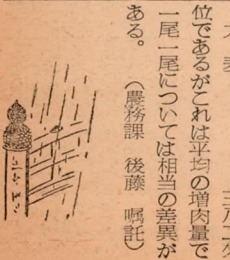 位であるがこれは平均の増肉量で
一尾一尾については相当の差異が
ある。　（農務課　後藤　嘱託）